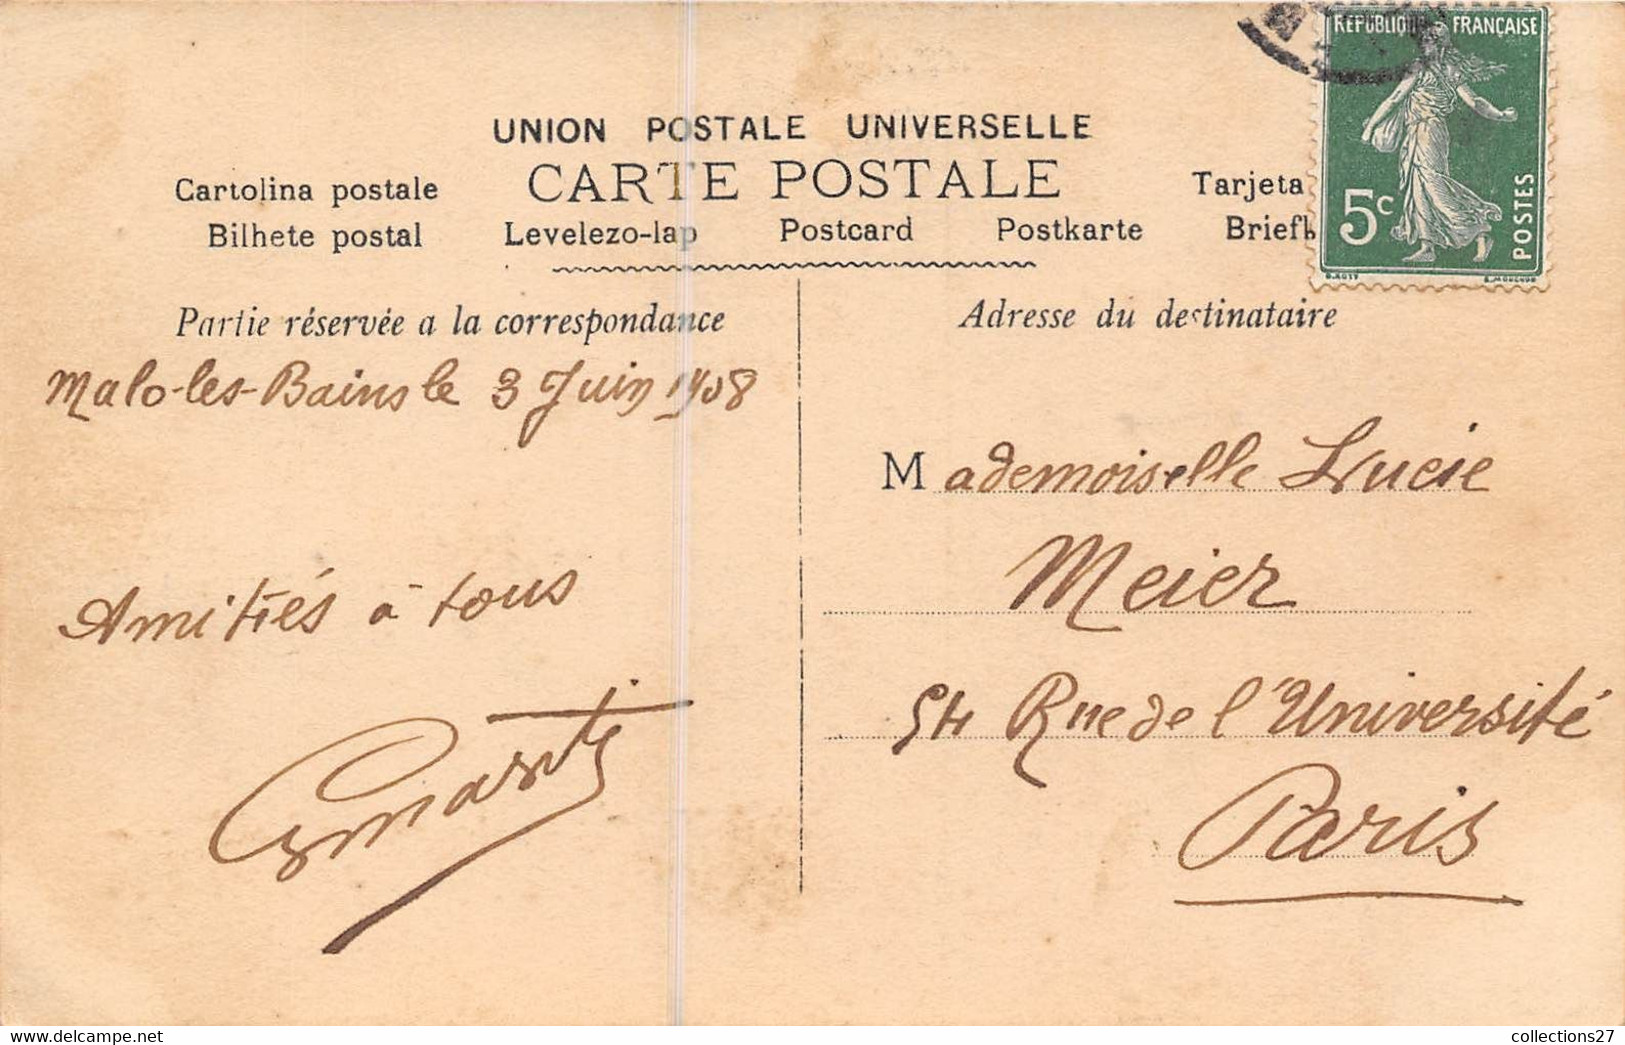 RÉPUBLIQUE FRANÇAISE
5c
POSTES
UNION POSTALE UNIVERSELLE
CARTE POSTALE
Cartolina postale
Tarjeta
Bilhete postal
Levelezo-lap
Postcard
Postkarte
Partie réservée a la correspondance
Adresse du destinataire
Malo-les-Bains le 3 Juin 1908
Mademoiselle Lucie
Meier
54 Rue de l'Université
Paris
Amitiés à tous
www.delcampe.net
collections27